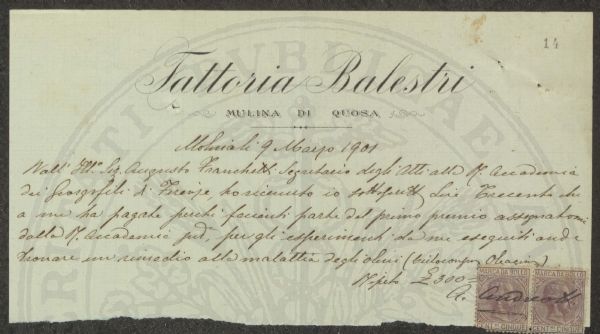 14
Fattoria Balestri
MULINA DI QUOSA
9 Marzo 1901
Dall' Ill.mo Sig. Augusto Franchetti Segretario degli Atti alla R. Accademia
dei Georgofili di Firenze ho ricevuto io sottoscritto Lire Trecento che
a me ha pagate perchè facenti parte del primo premio assegnatomi
dalla R. Accademia pred.a per gli esperimenti da me eseguiti onde
trovare un rimedio alla malattia degli olivi (Cicloconium Oleaginum)
Dico £ 300
MARCA DA BOLLO MARCA DA BOLLO
CENT.MI CINQUE CENT.MI CINQUE